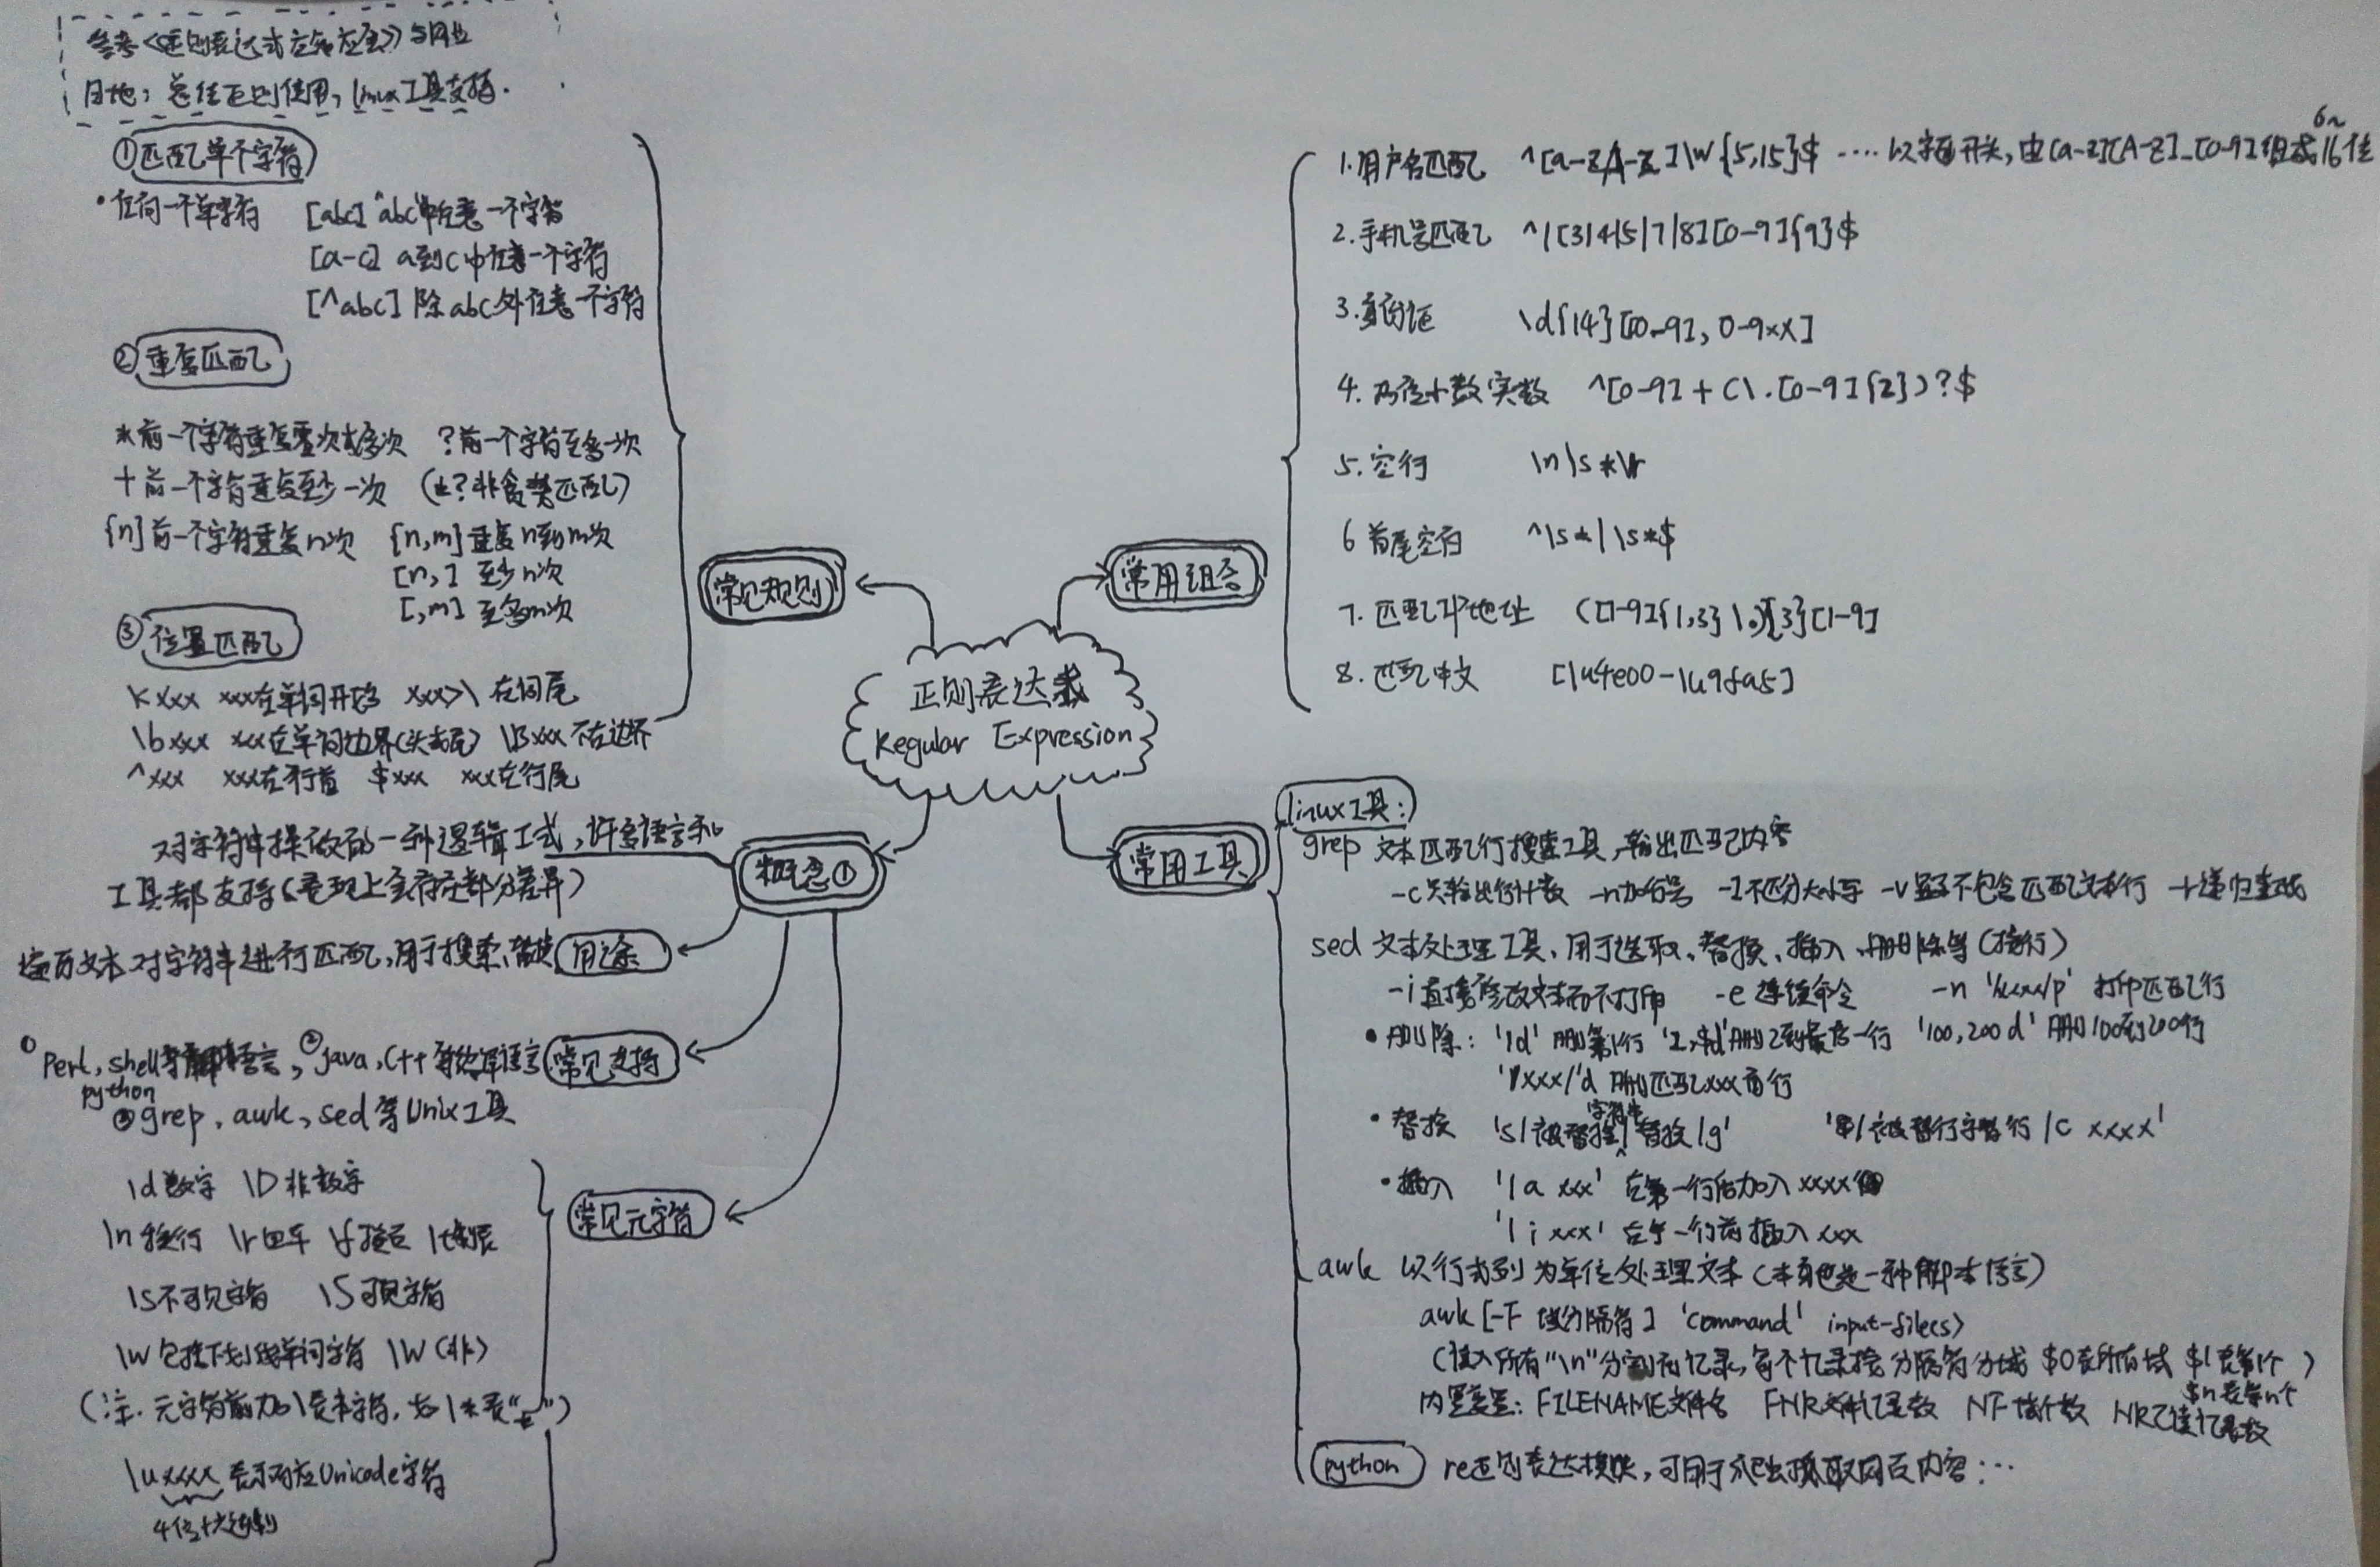 参考《正则表达式
目地：总结正则使用，linux工具支持.
①匹配单个字符
•任何一个单字符 [abc] "abc"中任意一个字符
[a-c] a到c中任意一个字符
[^abc] 除abc外任意一个字符
②重复匹配
*前一个字符重复零次或多次 ?前一个字符至多一次
+前一个字符重复至少一次 (?非贪婪匹配)
{n}前一个字符重复n次 {n,m}重复n到m次
[n,] 至少n次
[,m] 至多m次
③位置匹配
xxx在单词开始 xxx>\ 在词尾
\bxxx xxx在单词边界(头或尾) \Bxxx不在边界
^xxx xxx在行首 $xxx xxx在行尾
常见规则
正则表达式
Regular Expression
常用组合
1.用户名匹配 ^[a-zA-Z]\w{5,15}$ ....以字母开头,由[a-z][A-Z]_[0-9]组成6~16位
2.手机号匹配 ^1[3|4|5|7|8][0-9]{9}$
3.身份证 \d{14}[[0-9],0-9xX]
4.两位小数实数 ^[0-9]+(\.[0-9]{2})?$
5.空行 \n\s*\r
6首尾空白 ^\s*|\s*$
7.匹配IP地址 ([1-9]{1,3}\.){3}[1-9]
8.匹配中文 [\u4e00-\u9fa5]
概念①
对字符串操做的一种逻辑工式,许多语言和
工具都支持(表现上会存在部分差异)
用途
遍历文本对字符串进行匹配,用于搜索、替换
常见支持
①Perl,shell等脚本语言,②java,C++等编译语言
python
③grep,awk,sed等Unix工具
常见元字符
\d数字 \D非数字
\n换行 \r回车 \f换页 \t制表
\s不可见字符 \S可见字符
\w包括下划线单词字符 \W(非)
(注.元字符前加\表本字符,如\*表"*")
\uxxxx表示对应Unicode字符
4位十六进制
常用工具
linux工具:
grep 文本匹配行搜索工具,输出匹配内容
-c只输出行计数 -n加行号 -I不区分大小写 -v显示不包含匹配文本行 -r递归查找
sed 文本处理工具,用于选取、替换、插入、删除等(按行)
-i直接修改文本而不打印 -e连续命令 -n '/xxx/p' 打印匹配行
•删除: '1d' 删第1行 '2,$d'删2到最后一行 '100,200d' 删100到200行
'/xxx/'d 删匹配xxx的行
•替换 's/被替换字符串/替换/g' 被替行字符行/c xxxx'
•插入 '1a xxx' 在第一行后加入xxxx
'1i xxx' 在第一行前插入xxx
awk 以行或列为单位处理文本(本身也是一种脚本语言)
awk [-F 域分隔符] 'command' input-file(s)
(读入所有"\n"分割的记录,每个记录按分隔符分域 $0表所有域 $1表第1个)
$n表第n个
内置变量: FILENAME文件名 FNR文件记录数 NF域个数 NR已读记录数
python re正则表达模块,可用于爬虫抓取网页内容;...